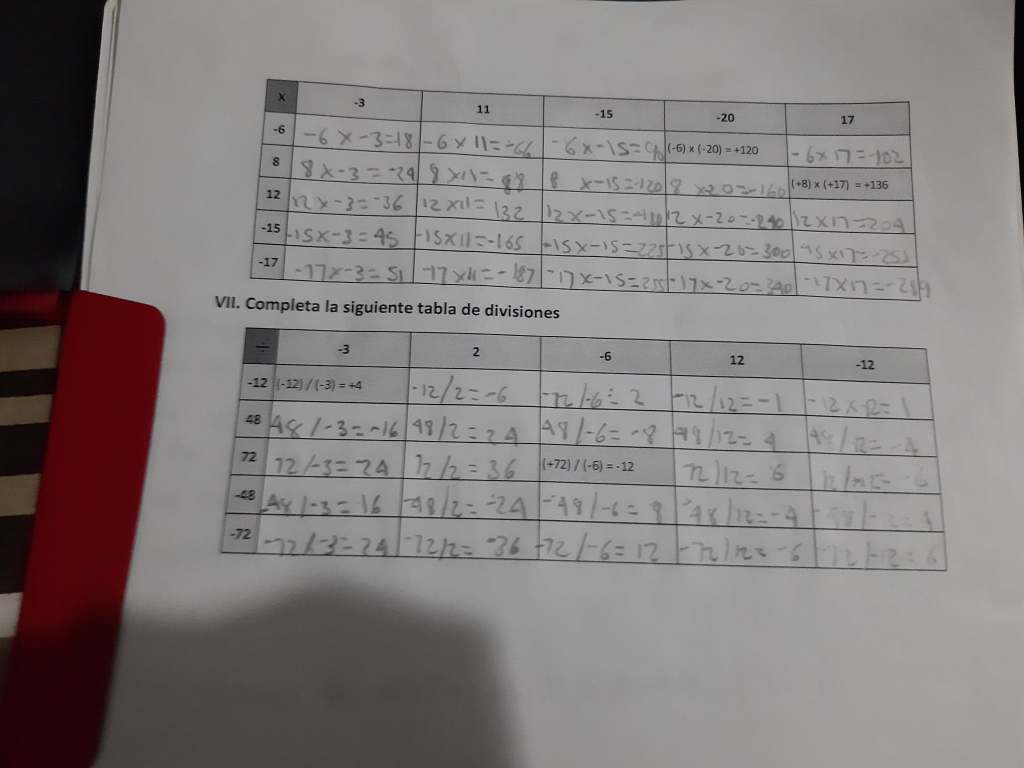 x -3 11 -15 -20 17
-6 -6 x -3=18 -6 x 11=-66 -6x-15=90 (-6) x (-20) = +120 -6x17=-102
8 8x-3=-24 8x11=88 8 x-15=-120 8 x20=-160 (+8) x (+17) = +136
12 12x-3=-36 12x11=132 12x-15=-180 12x-20=-240 12x17=204
-15 -15x-3=45 -15x11=-165 -15x-15=225 -15x-20=300 -15x17=-255
-17 -17x-3=51 -17x11=-187 -17x-15=255 -17x-20=340 -17x17=-289
VII. Completa la siguiente tabla de divisiones
÷ -3 2 -6 12 -12
-12 (-12) / (-3) = +4 -12/2=-6 -12/-6=2 -12/12=-1 -12x-12=1
48 48/-3=-16 48/2=24 48/-6=-8 48/12=4 48/-12=-4
72 72/-3=24 72/2=36 (+72) / (-6) = -12 72/12=6
-48 -48/-3=16 -48/2=-24 -48/-6=8 -48/12=-4
-72 -72/-3=24 -72/2=-36 -72/-6=12 -72/12=-6 -72/-12=6